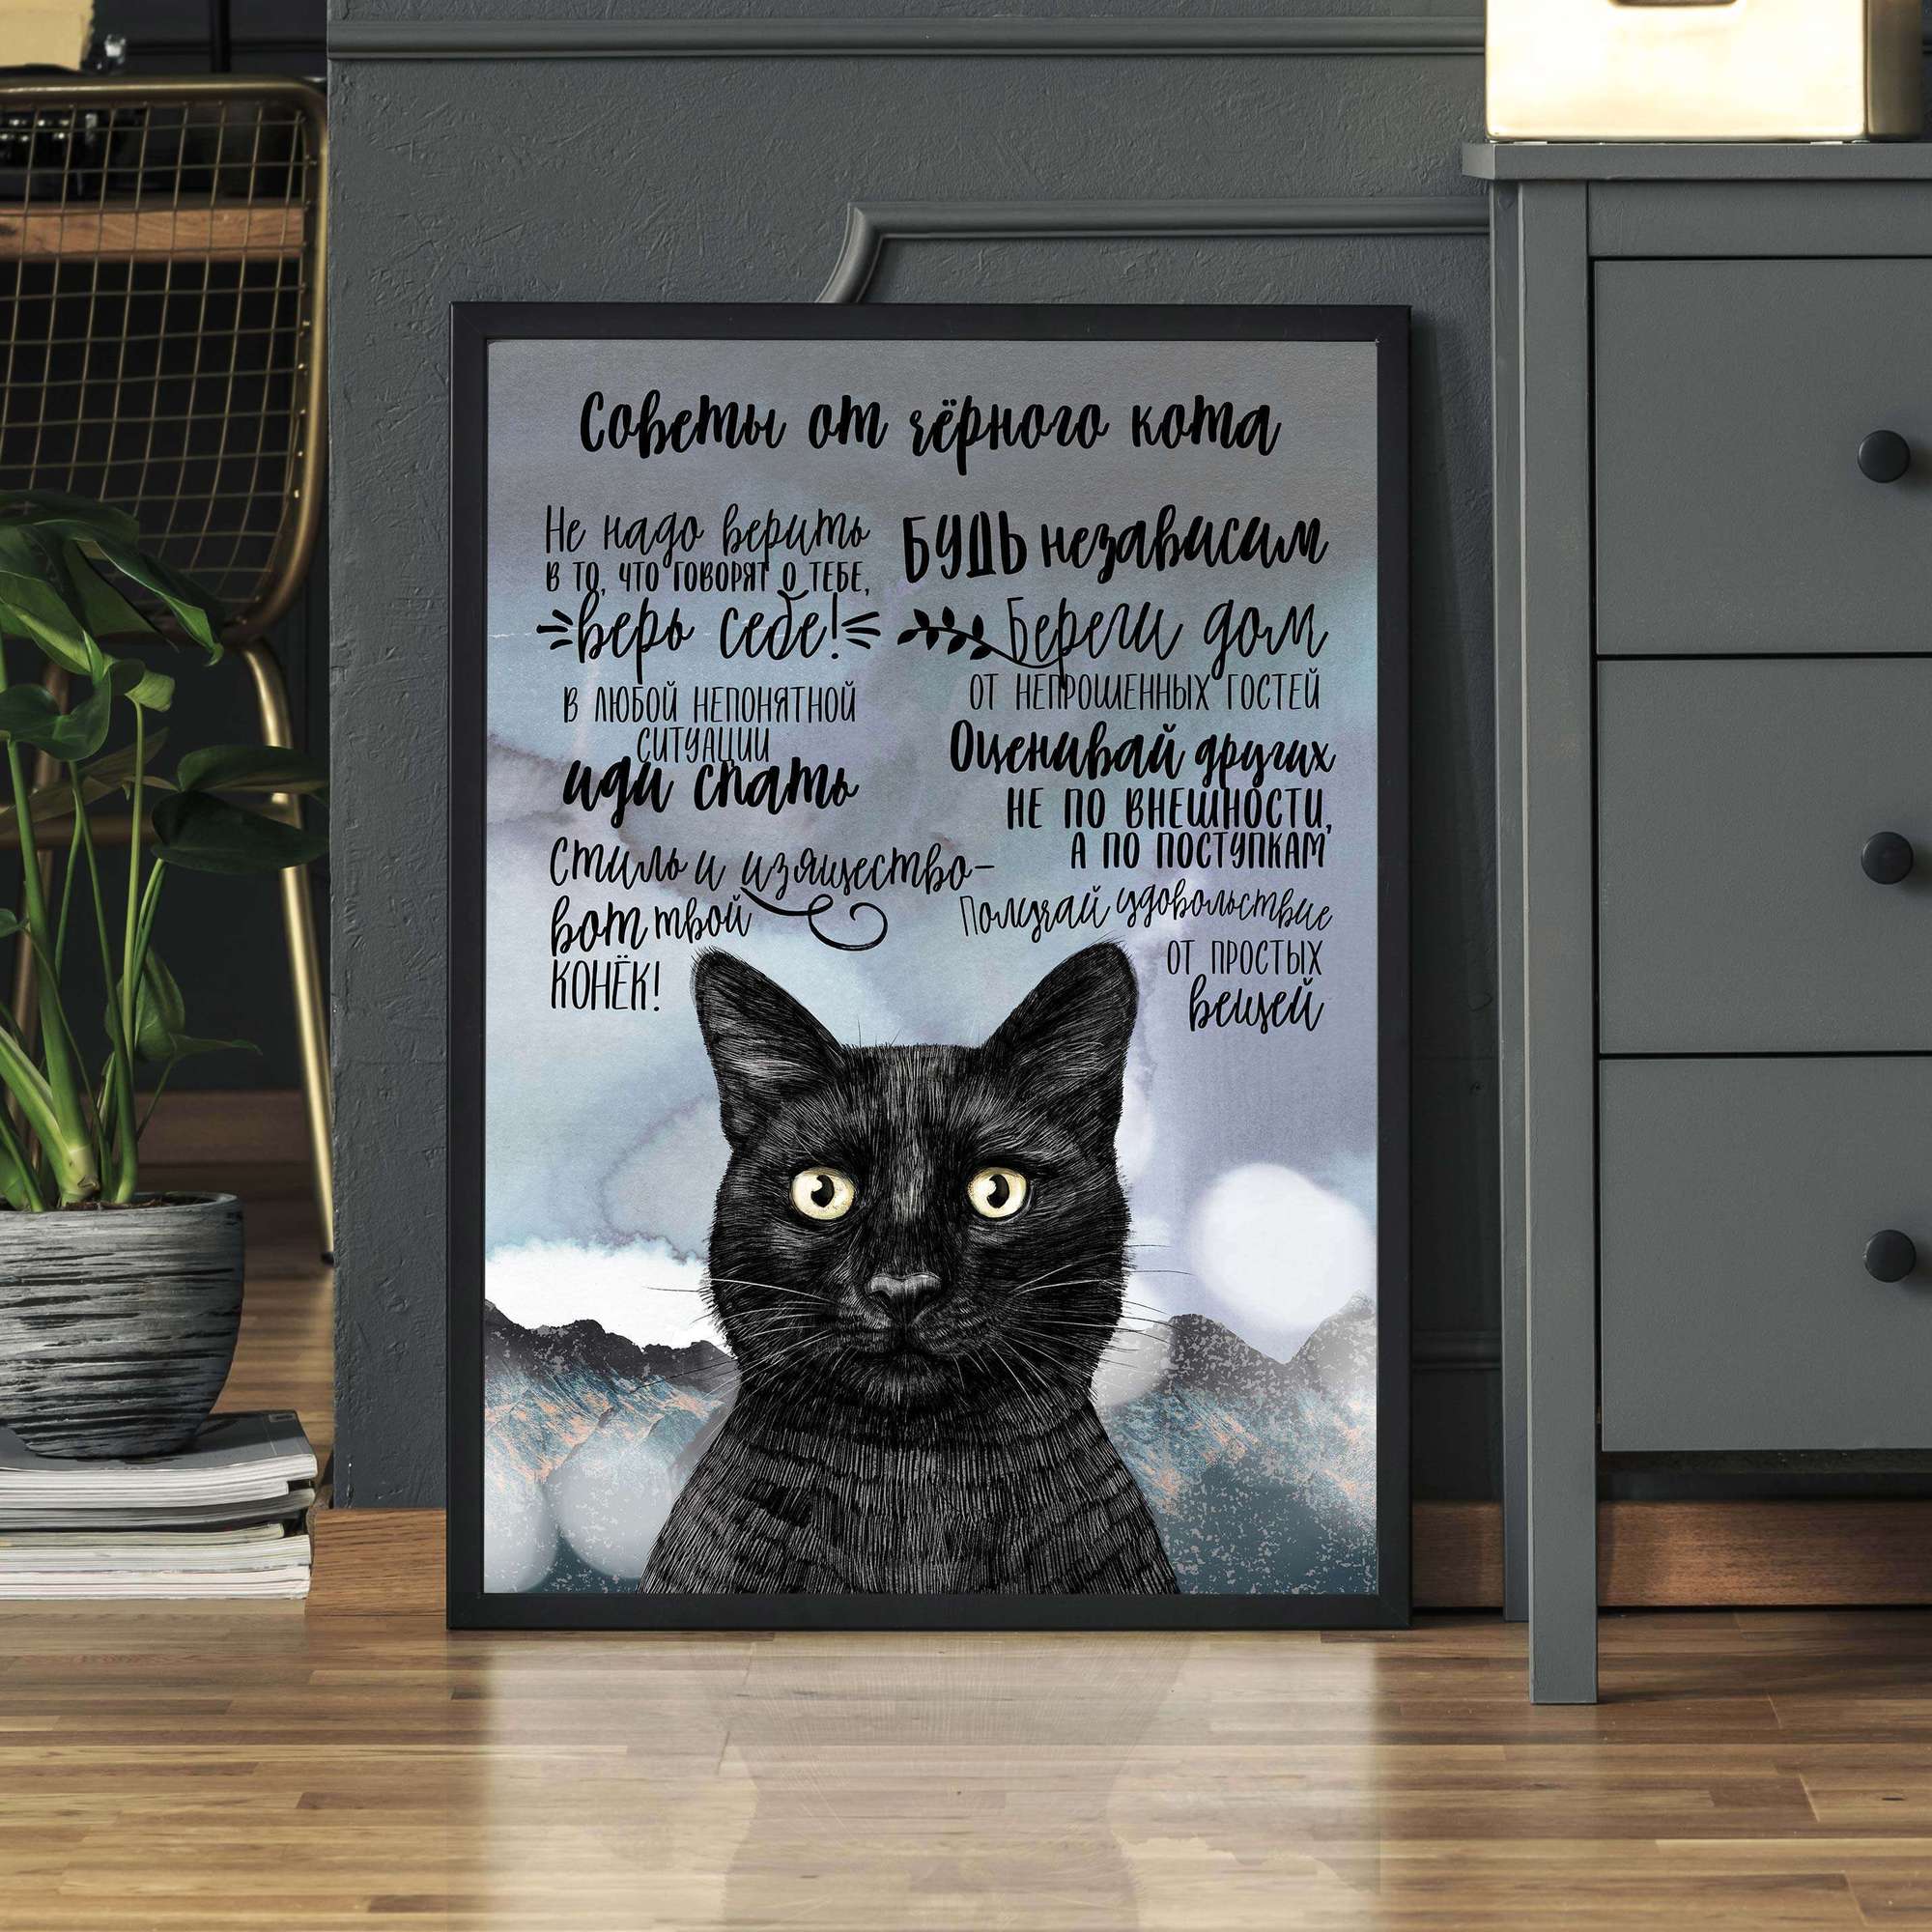 Советы от чёрного кота
Не надо верить
в то, что говорят о тебе,
верь себе!
в любой непонятной
ситуации
иди спать
Стиль и изящество-
вот твой
конёк!
Будь независим
Береги дом
от непрошенных гостей
Оценивай других
не по внешности,
а по поступкам
Получай удовольствие
от простых
вещей